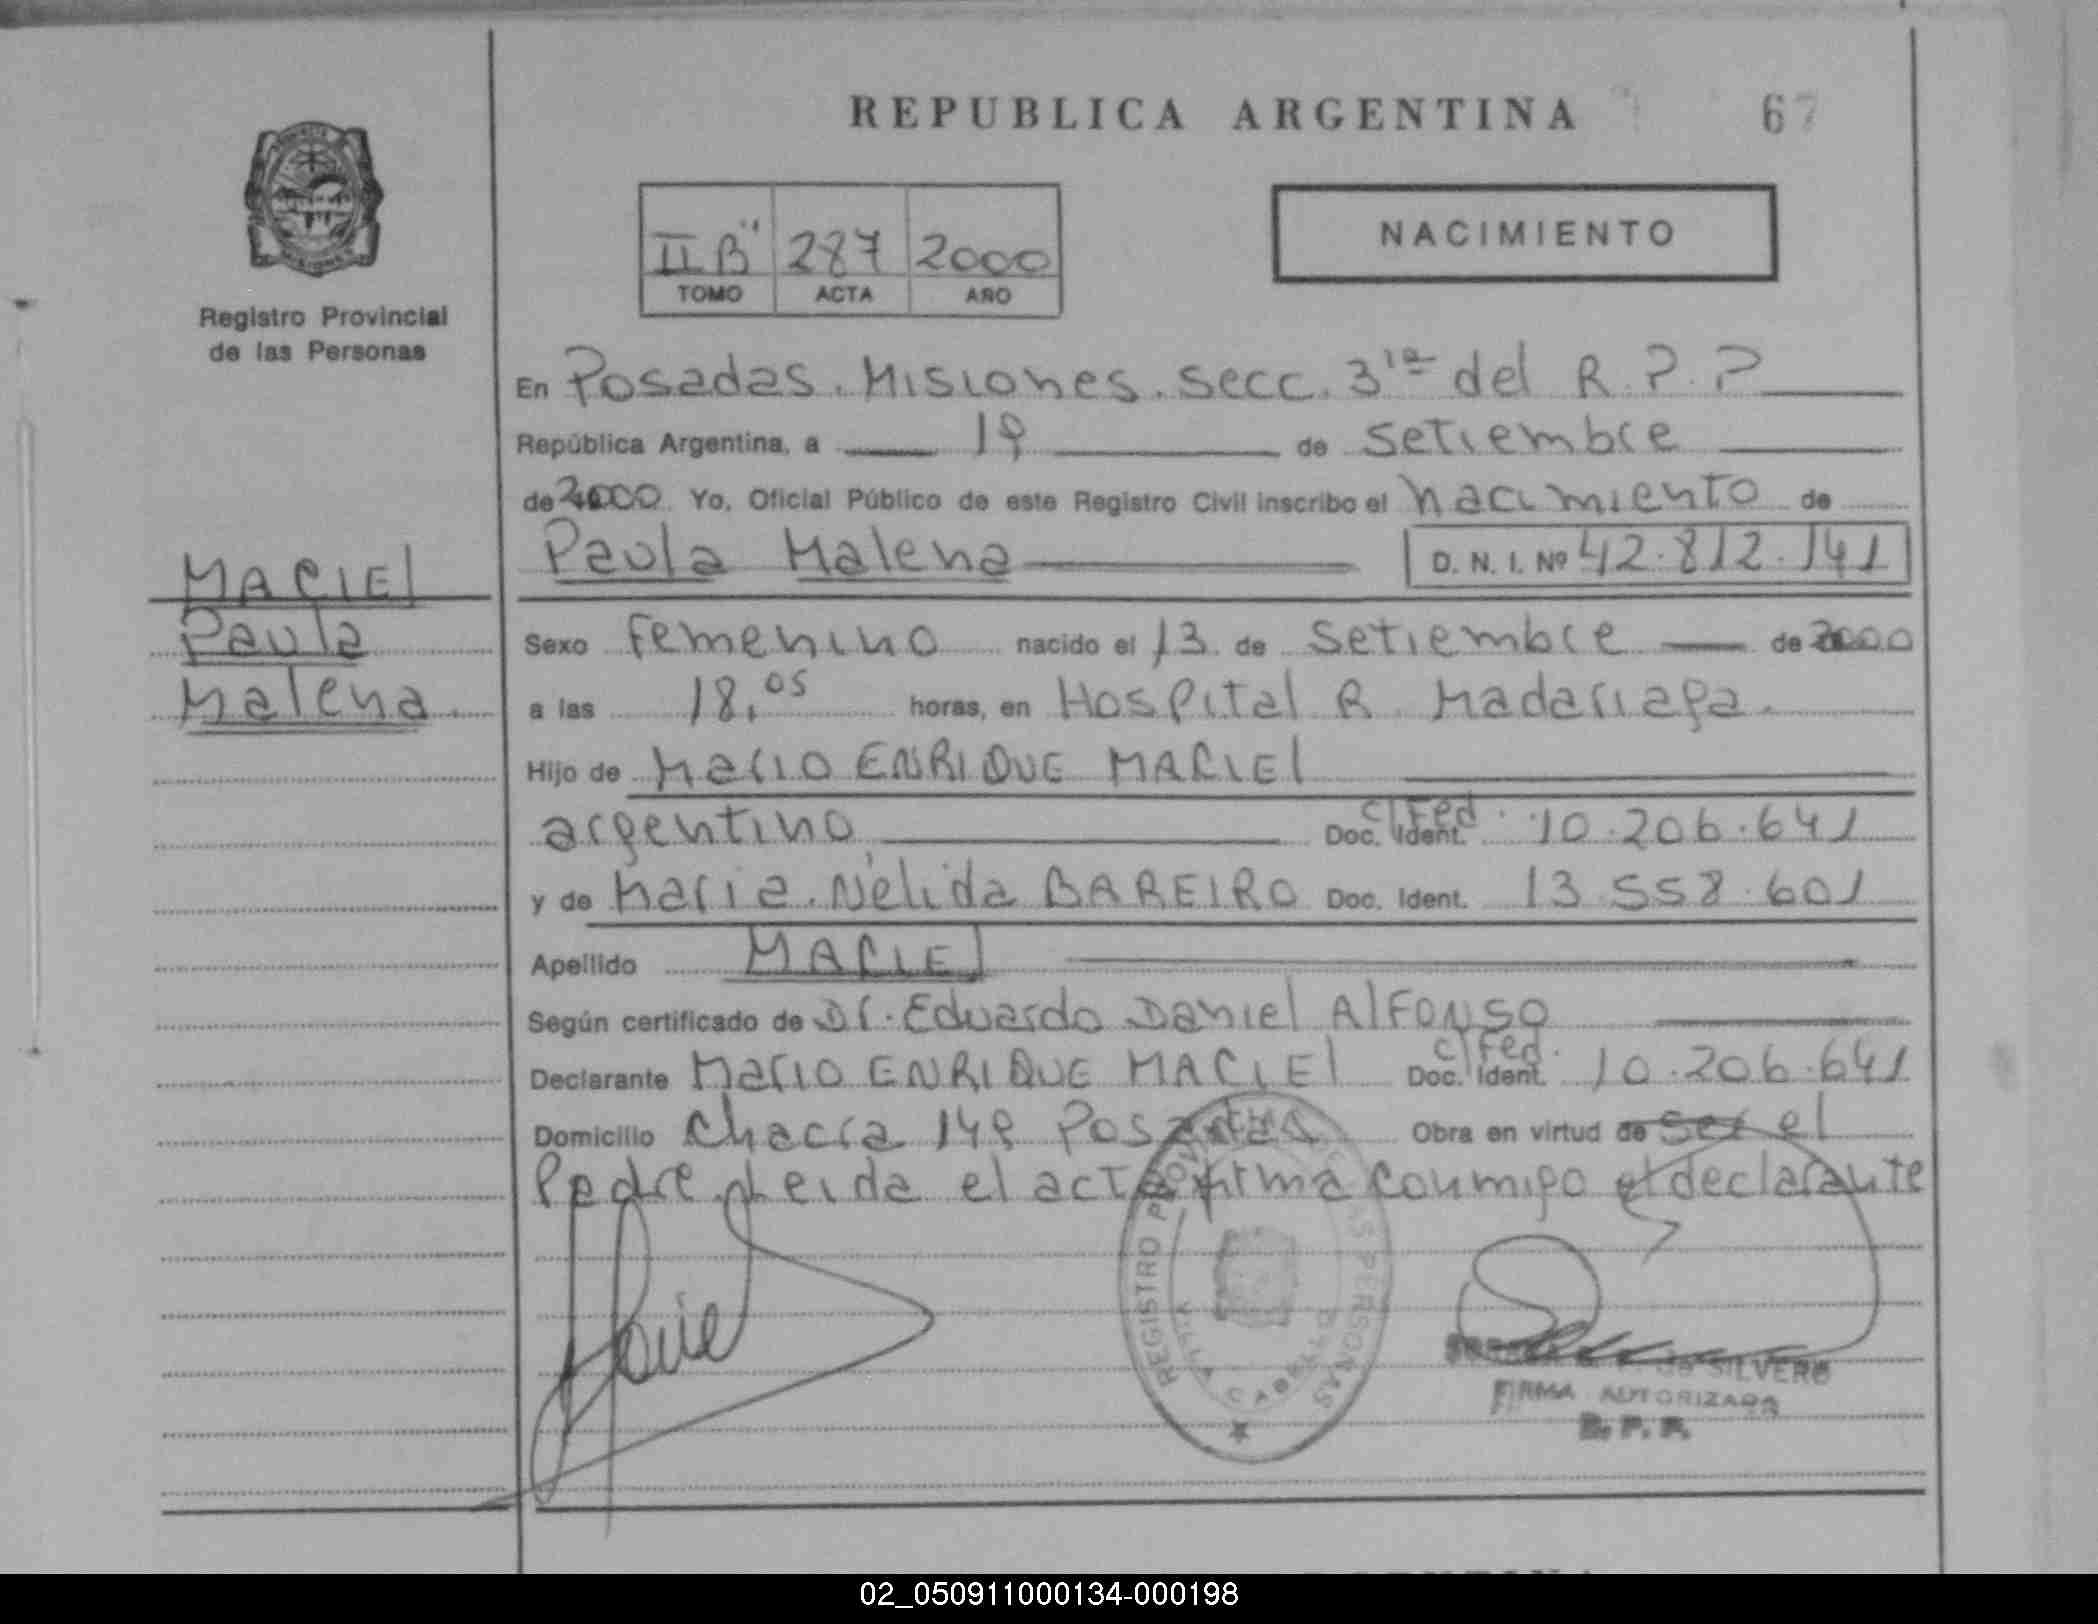 REPUBLICA ARGENTINA 67
II B" 287 2000
TOMO ACTA AÑO
NACIMIENTO
Registro Provincial
de las Personas
MACIEL
Paula
Malena.
En Posadas. Misiones. secc. 3ra del R.P.P
República Argentina, a 19 de setiembre
de 2000. Yo, Oficial Público de este Registro Civil inscribo el nacimiento de
Paula Malena D. N. I. Nº 42.812.141
Sexo Femenino nacido el 13 de Setiembre de 2000
a las 18,05 horas, en Hospital R. Madariaga.
Hijo de Mario ENRIQUE MACIEL
argentino Doc. Ident. C/Fed. 10.206.641
y de Maria. Nélida BAREIRO Doc. Ident. 13.558.601
Apellido MACIEL
Según certificado de Dr. Eduardo Daniel AlFONSO
Declarante Mario ENRIQUE MACIEL Doc. Ident. C/Fed. 10.206.641
Domicilio Chacra 149 Posadas Obra en virtud de ser el
Padre. Leida el acta firma conmigo el declarante
REGISTRO PROVINCIAL DE LAS PERSONAS
VILLA CABELLO
SILVERO
FIRMA AUTORIZADA
R. P. P.
02_050911000134-000198